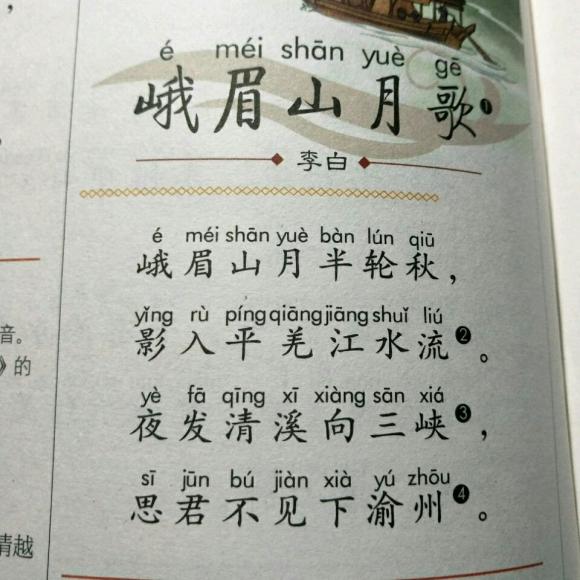 é méi shān yuè gē
峨眉山月歌❶
李白
é méi shān yuè bàn lún qiū
峨眉山月半轮秋，
yǐng rù píng qiāng jiāng shuǐ liú
影入平羌江水流❷。
yè fā qīng xī xiàng sān xiá
夜发清溪向三峡❸，
sī jūn bú jiàn xià yú zhōu
思君不见下渝州❹。
音。
》的
情越